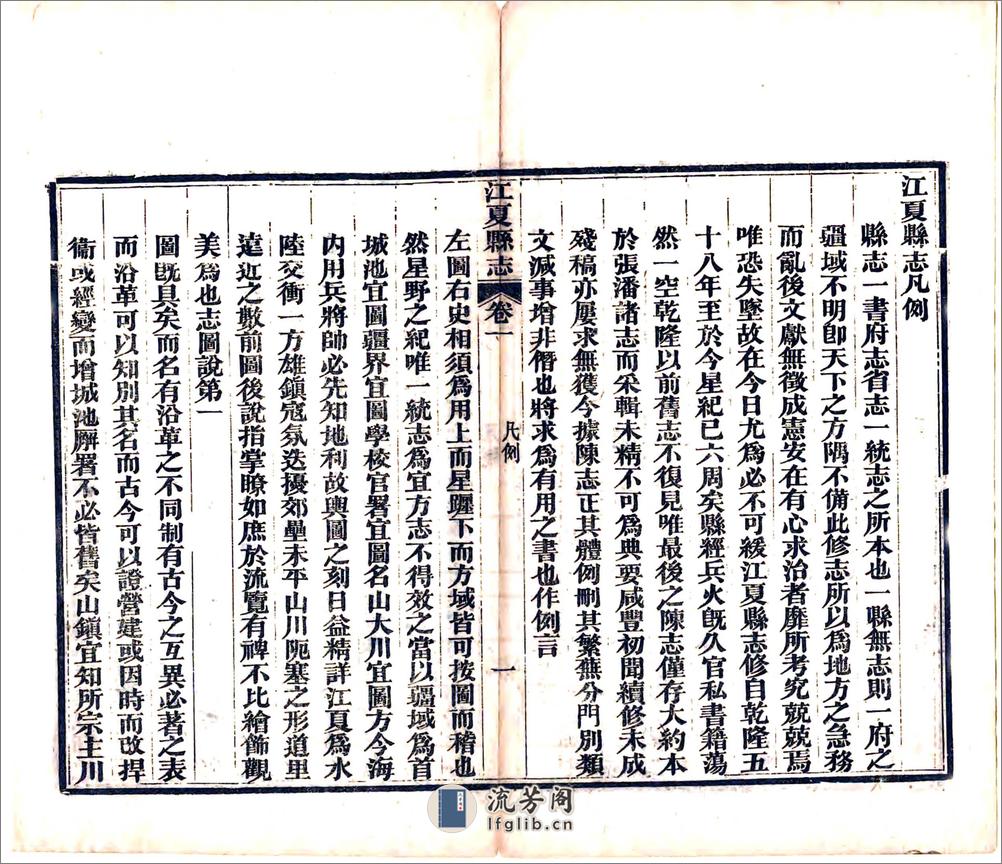 江夏縣志凡例
縣志一書府志省志一統志之所本也一縣無志則一府之
疆域不明卽天下之方隅不備此修志所以爲地方之急務
而亂後文獻無徵成憲安在有心求治者靡所考究兢兢焉
唯恐失墜故在今日尤爲必不可緩江夏縣志修自乾隆五
十八年至於今星紀已六周矣縣經兵火旣久官私書籍蕩
然一空乾隆以前舊志不復見唯最後之陳志僅存大約本
於張潘諸志而采輯未精不可爲典要咸豐初聞續修未成
殘稿亦屢求無獲今據陳志正其體例刪其繁蕪分門別類
文減事增非僭也將求爲有用之書也作例言
江夏縣志
卷一
凡例
一
左圖右史相須爲用上而星躔下而方域皆可按圖而稽也
然星野之紀唯一統志爲宜方志不得效之當以疆域爲首
城池宜圖疆界宜圖學校官署宜圖名山大川宜圖方今海
內用兵將帥必先知地利故輿圖之刻日益精詳江夏爲水
陸交衝一方雄鎮寇氛迭擾郊壘未平山川阨塞之形道里
遠近之數前圖後說指掌瞭如庶於流覽有裨不比繪飾觀
美爲也志圖說第一
圖旣具矣而名有沿革之不同制有古今之互異必著之表
而沿革可以知別其名而古今可以證營建或因時而改捍
衞或經變而增城池廨署不必皆舊矣山鎮宜知所宗主川
流芳阁
lfglib.cn